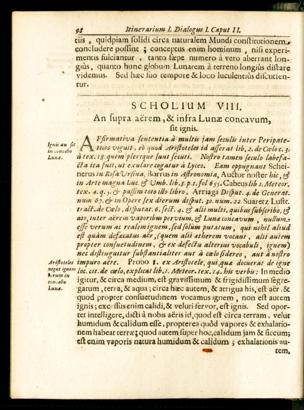 92 Itinerarium I. Dialogus I. Caput II.
tius, quidpiam solidi circa naturalem Mundi constitutionem,
concludere possint; conceptus enim hominum, nisi experi-
mentis fulciantur, tanto sæpe numero à vero aberrant lon-
giùs, quanto hunc globum Lunarem à terreno longiùs distare
videmus. Sed hæc suo tempore & loco luculentiùs discutien-
tur.
SCHOLIUM VIII.
An supra aërem, & infra Lunæ concavum,
sit ignis.
Ignis an sit
in concavo
Lunæ.
Affirmativa sententia à multis jam seculis inter Peripate-
ticos viguit, eò quòd Aristoteles id asserat lib. 2. de Cœlo c. 3.
à tex. 19. quem plerique sunt secuti. Nostro tamen seculo labefa-
cta ita fuit, ut exulare cogatur à Lyceo. Eam oppugnant Schei-
nerus in Rosa Ursina, Borrus in Astronomia, Auctor noster hic, &
in Arte magna Luc. & Umb. lib. 2. p. 1. fol. 655. Cabeus lib. 1. Meteor.
tex. 4. q. 5. & passim toto illo libro, Arriaga Disput. 4. de Generat.
num. 67. & in Opere sex dierum disput. 30. num. 22. Suarez Lusit.
tract. de Cœlo, disputat. 6. sect. 4. & alii multi, quibus subscribo, &
aio, inter aërem vaporibus pervium, & Lunæ concavum, nullum
esse verum ac realem ignem, sed solùm puratum, qui nihil aliud
est quàm defæcatus aër, (quem alii ætherem vocant, alii autem
propter consuetudinem, & ex defectu alterius vocabuli, ignem)
nec distinguitur substantialiter aut à cœlo sidereo, aut à nostro
Aristoteles
negat ignem
verum in
concavo
Lunæ.
impuro aëre. Probo 1. ex Aristotele, qui quæ docuerat de igne
loc. cit. de cœlo, explicat lib. 1. Meteor. tex. 14. his verbis: In medio
igitur, & circa medium, est gravissimum & frigidissimum segre-
gatum, terra, & aqua; circa hæc autem, & contigua his, est aër, &
quod propter consuetudinem vocamus ignem, non est autem
ignis; excessus enim calidi, & veluti fervor, est ignis. Sed opor-
tet intelligere, dicti à nobis aëris id, quod est circa terram, velut
humidum & calidum esse, propterea quòd vapores & exhalatio-
nem habeat terræ; quod autem super hoc, calidum jam & siccum;
est enim vaporis natura humidum & calidum; exhalationis au-
tem,